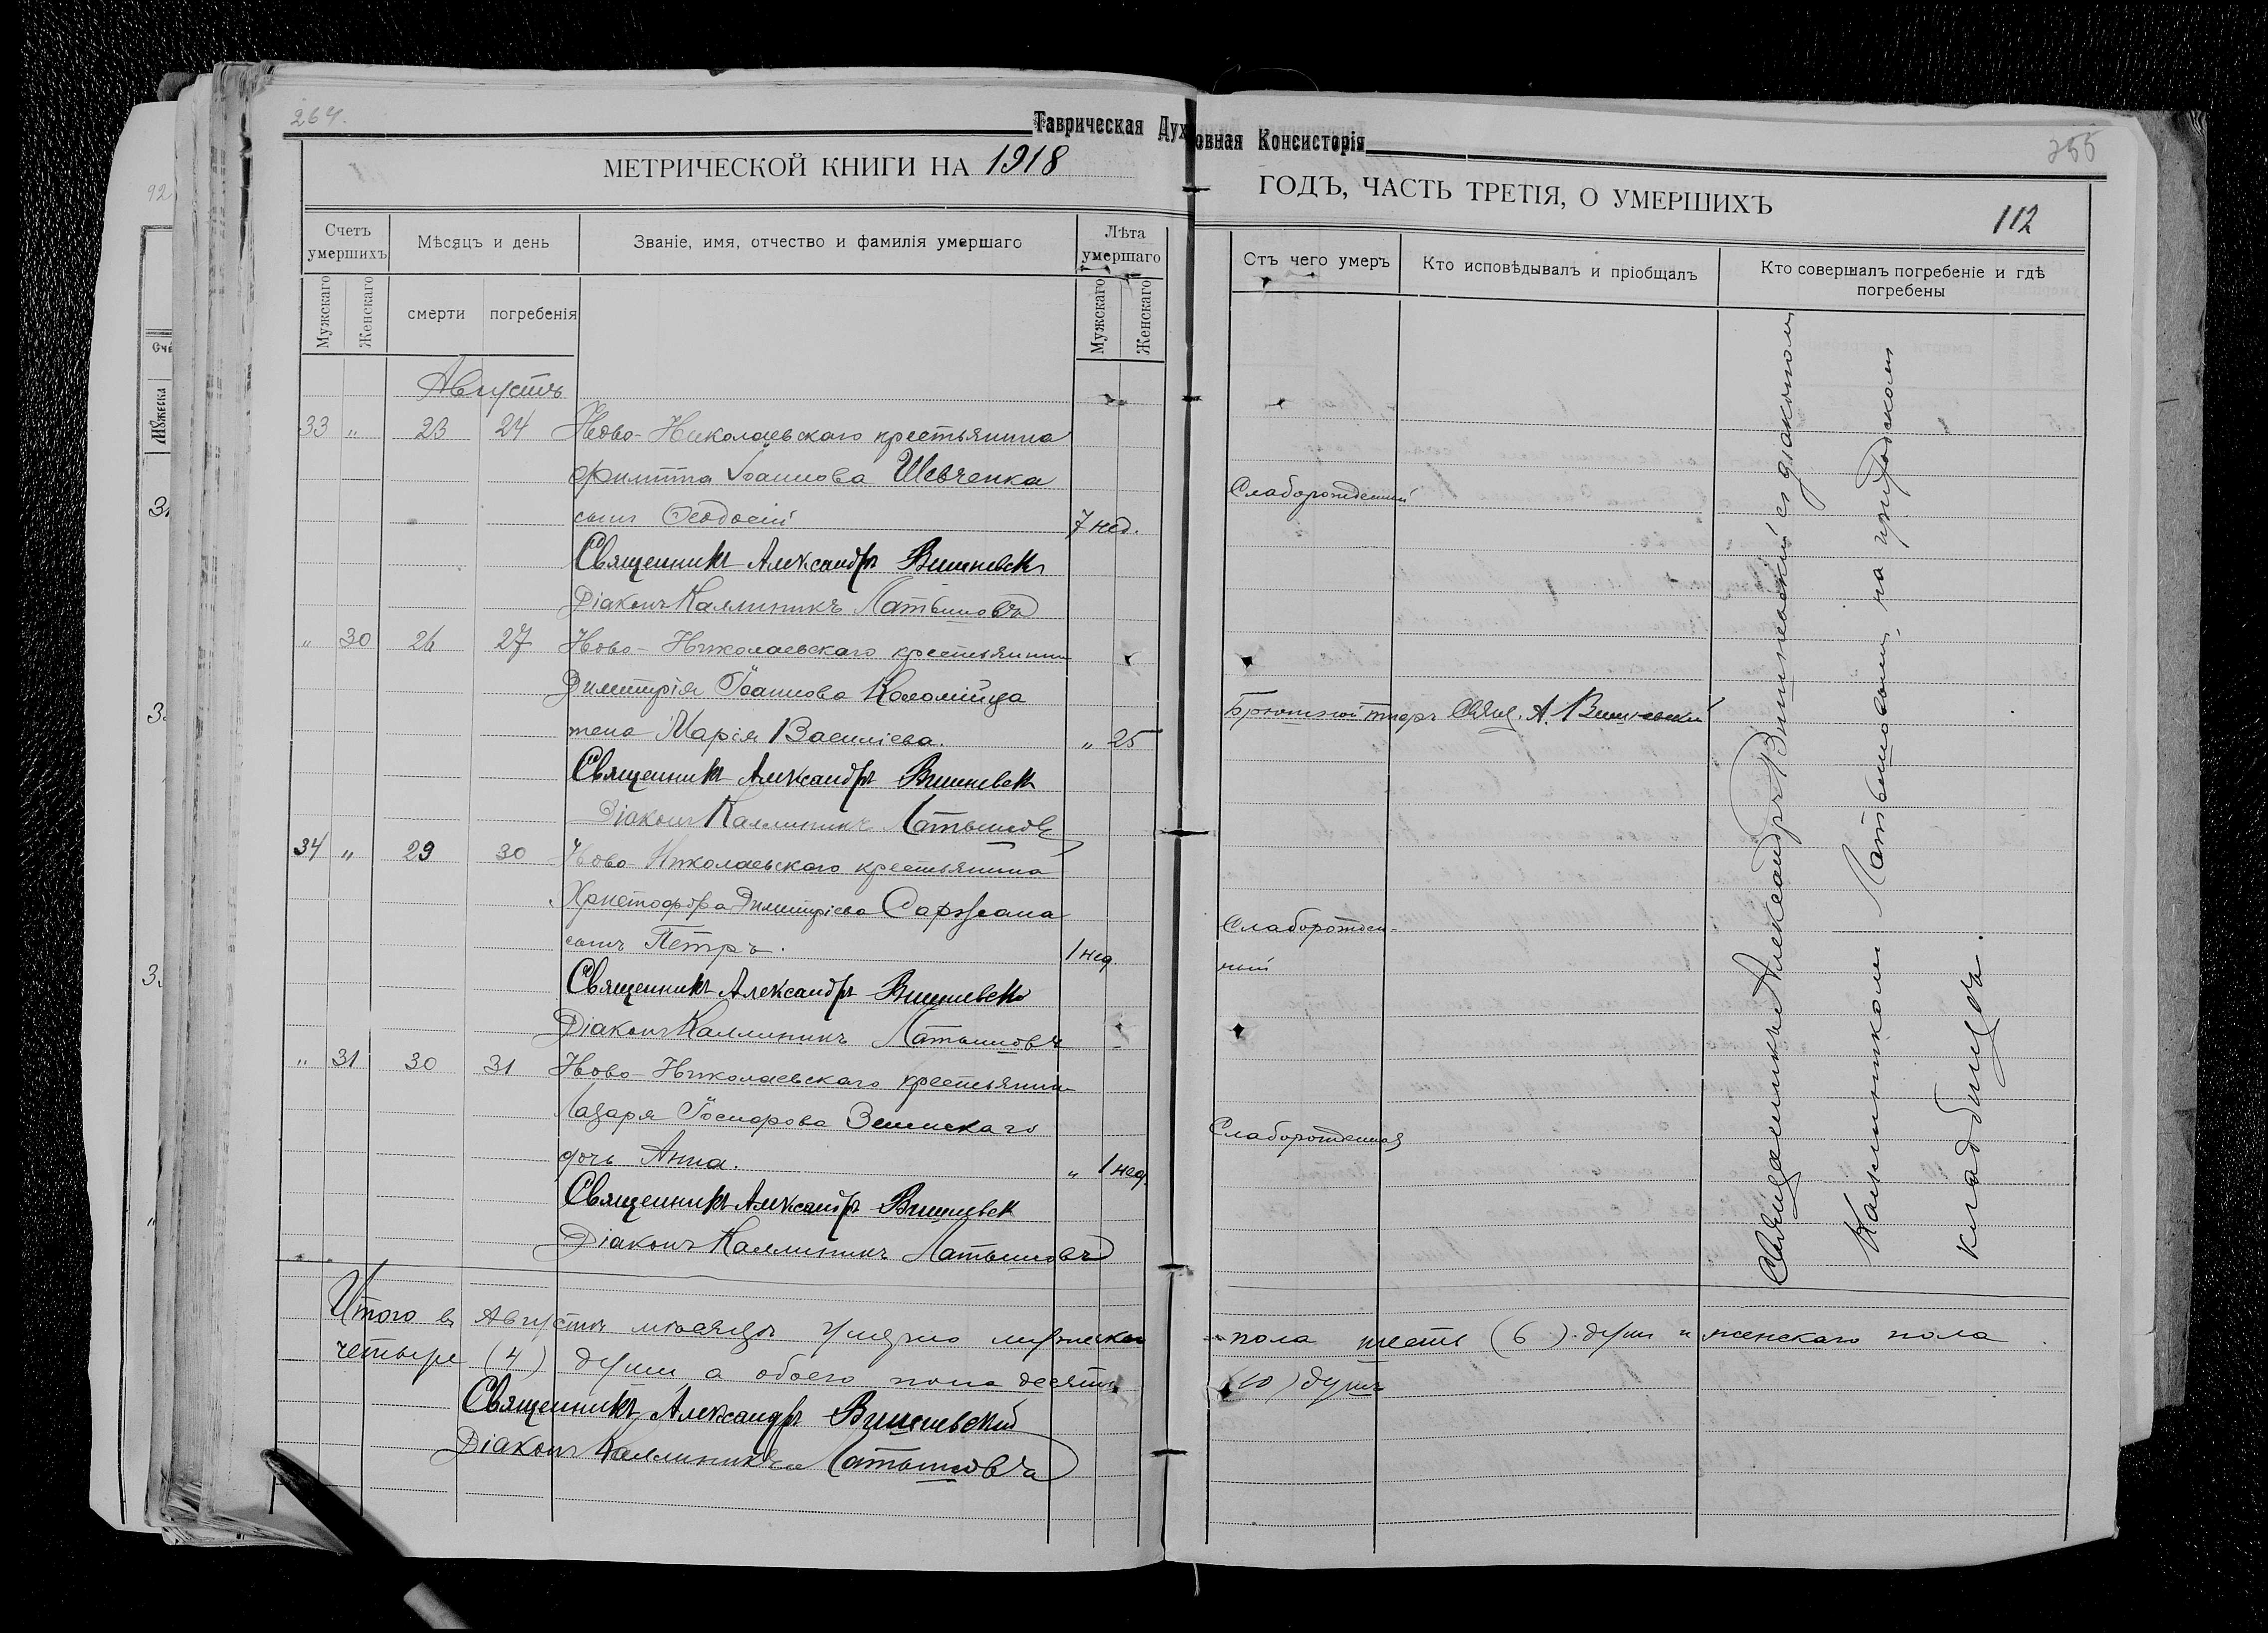 264.
Таврическая Духовная Консисторія
255
МЕТРИЧЕСКОЙ КНИГИ НА 1918
ГОДЪ, ЧАСТЬ ТРЕТІЯ, О УМЕРШИХЪ
112
Счетъ умершихъ
Мужскаго
Женскаго
Мѣсяцъ и день
смерти
погребенія
Званіе, имя, отчество и фамилія умершаго
Лѣта умершаго
Мужскаго
Женскаго
Отъ чего умеръ
Кто исповѣдывалъ и пріобщалъ
Кто совершалъ погребеніе и гдѣ погребены
Августъ
33 " 23 24 Ново-Николаевскаго крестьянина
Филиппа Іоаннова Шевченка
сынъ Ѳеодосій 7 нед. Слаборожденный
Священникъ Александръ Вишневск
Діаконъ Каллиникъ Латышовъ
" 30 26 27 Ново-Николаевскаго крестьянина
Димитрія Іоаннова Коломійца
жена Марія Василіева. " 25 Брюшной тифъ Свящ. А. Вишневскій
Священникъ Александръ Вишневск
Діаконъ Каллиникъ Латышовъ
34 " 29 30 Ново-Николаевскаго крестьянина
Христофора Димитріева Саржана
сынъ Петръ. 1 нед. Слаборожден-
ный
Священникъ Александръ Вишневск
Діаконъ Каллиникъ Латышовъ
" 31 30 31 Ново-Николаевскаго крестьянина
Лазаря
дочь Анна. " 1 нед. Слаборожденная
Священникъ Александръ Вишневск
Діаконъ Каллиникъ Латышовъ
Священникъ Александръ Вишневскій съ діакономъ
Каллиникомъ Латышовымъ, на приходскомъ
кладбищѣ.
Итого въ Августѣ мѣсяцѣ умерло мужеского пола шесть (6) душъ и женскаго пола
четыре (4) души а обоего пола десять (10) душъ
Священникъ Александръ Вишневскій
Діаконъ Каллиникъ Латышовъ